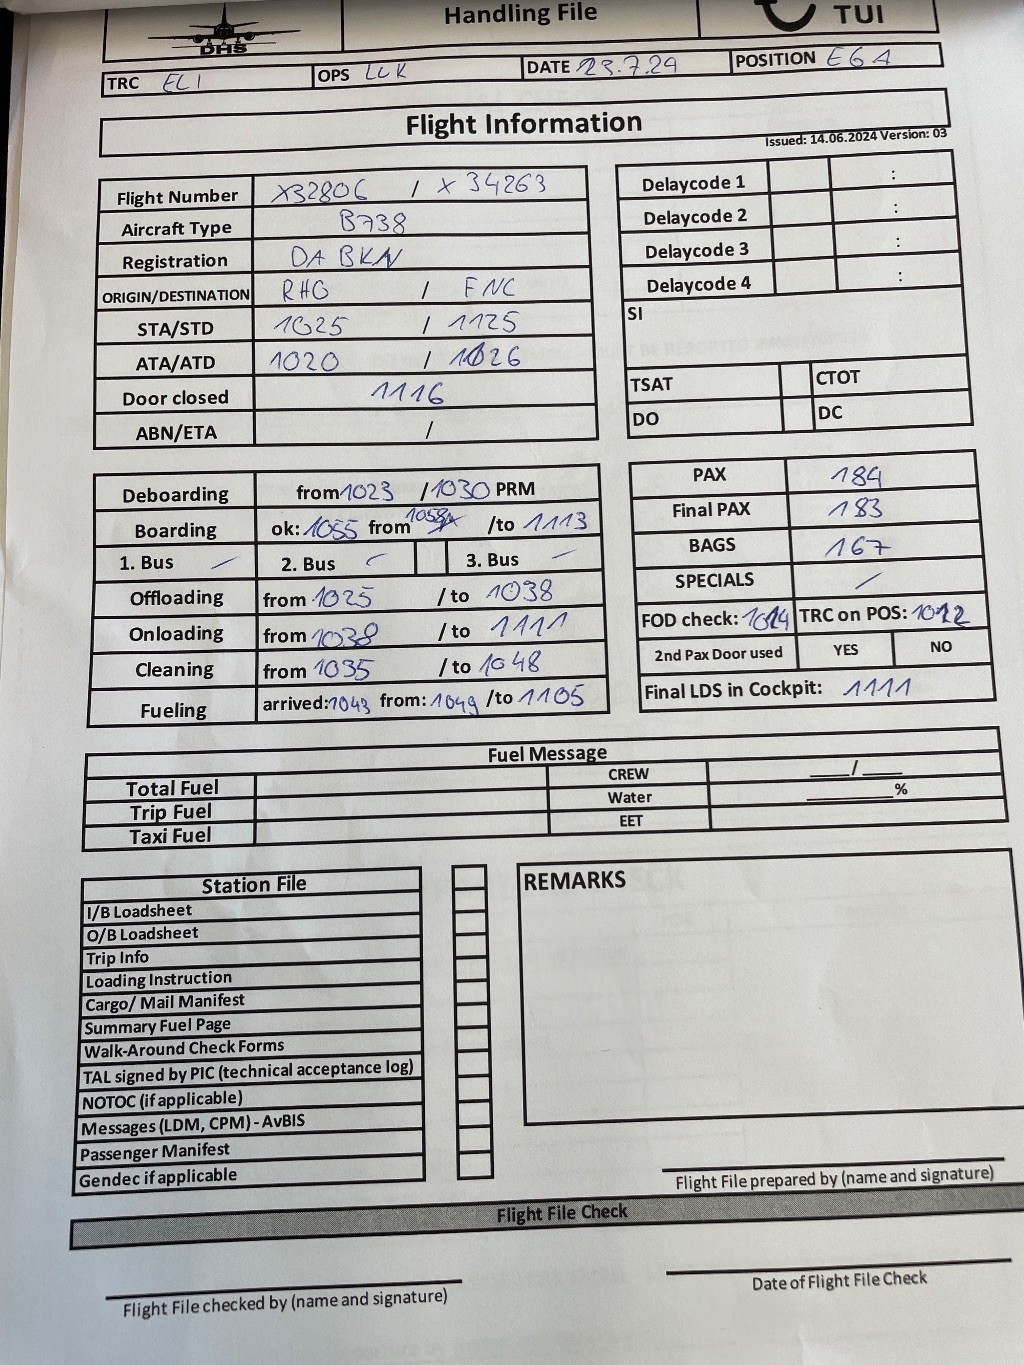 DHS
Handling File
TUI
TRC ELI OPS LUK DATE 23.7.24 POSITION E6A
Flight Information
Issued: 14.06.2024 Version: 03
Flight Number X32806 / X34263
Aircraft Type B738
Registration DABKN
ORIGIN/DESTINATION RHO / FNC
STA/STD 1025 / 1125
ATA/ATD 1020 / 1026
Door closed 1116
ABN/ETA /
Delaycode 1 :
Delaycode 2 :
Delaycode 3 :
Delaycode 4 :
SI
TSAT CTOT
DO DC
Deboarding from 1023 / 1030 PRM
Boarding ok: 1055 from 1058 /to 1113
1. Bus – 2. Bus – 3. Bus –
Offloading from 1025 / to 1038
Onloading from 1038 / to 1111
Cleaning from 1035 / to 1048
Fueling arrived: 1043 from: 1049 /to 1105
PAX 184
Final PAX 183
BAGS 167
SPECIALS /
FOD check: 1014 TRC on POS: 1012
2nd Pax Door used YES NO
Final LDS in Cockpit: 1111
Fuel Message
Total Fuel CREW ___/___
Trip Fuel Water ______%
Taxi Fuel EET
Station File
I/B Loadsheet
O/B Loadsheet
Trip Info
Loading Instruction
Cargo/ Mail Manifest
Summary Fuel Page
Walk-Around Check Forms
TAL signed by PIC (technical acceptance log)
NOTOC (if applicable)
Messages (LDM, CPM) - AvBIS
Passenger Manifest
Gendec if applicable
REMARKS
Flight File prepared by (name and signature)
Flight File Check
Flight File checked by (name and signature)
Date of Flight File Check